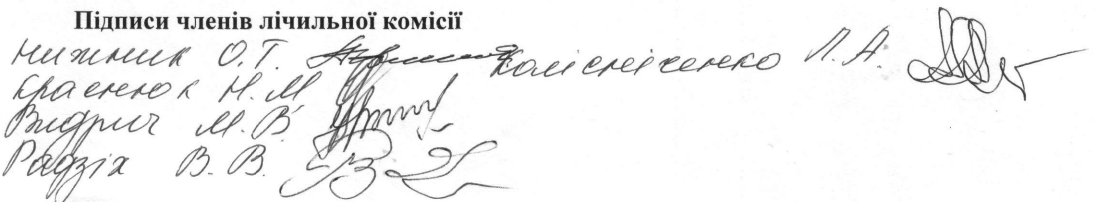 Підписи членів лічильної комісії
Нижник О.Т. Колісніченко Л.А.
Краснюк Н.М
Видрич М.В
Радзіх В.В.